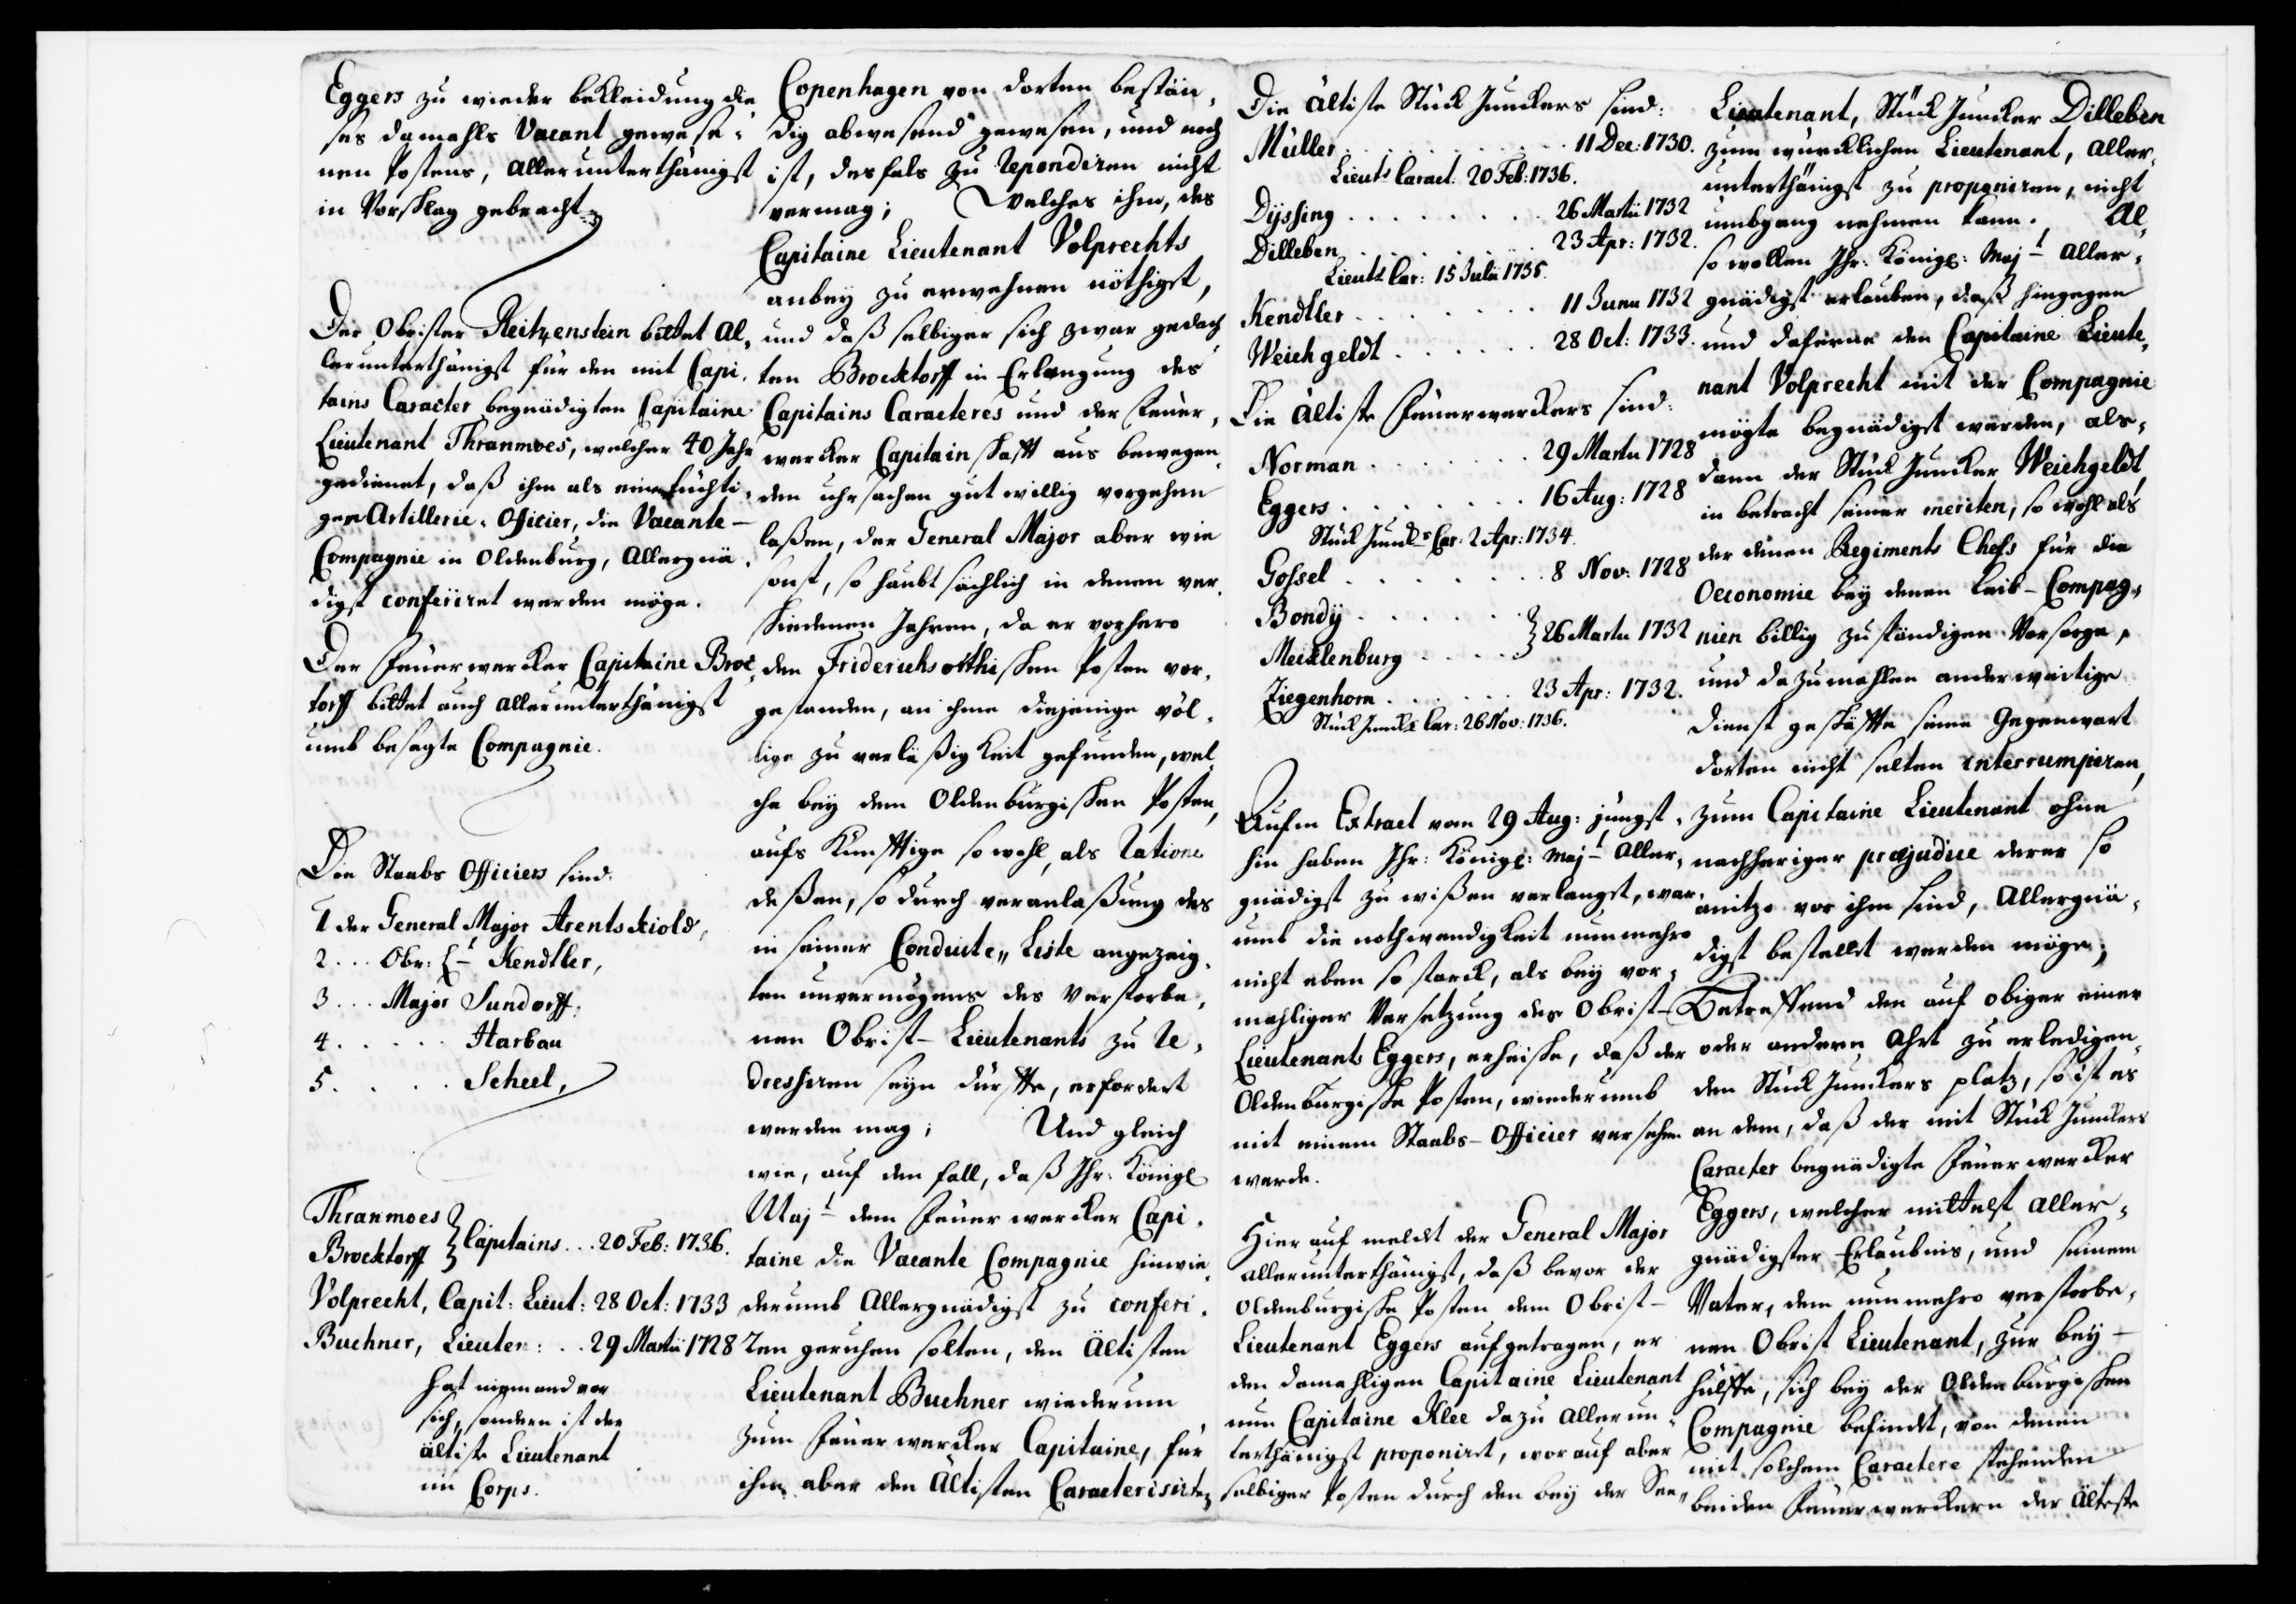 Eggers zu wieder bekleidung die
ses damahls Vacant gewese-
nen Postens, allerunterthänigst
in Vorschlag gebracht.
Der Obrister Reitzenstein bittet al-
lerunterthänigst für den mit Capi-
tains Caracter begnädigten Capitaine
Lieutenant Thranmoes, welcher 40 Jahr
gedienet, daß ihm als einen tüchti-
gen Artillerie-Officier, die Vacante
Compagnie in Oldenburg, Allergnä-
digst conferiret werden möge.
Der Feuerwercker Capitaine Broc-
torff bittet auch allerunterthänigst
umb besagte Compagnie.
Die Staabs Officiers sind.
1 der General Major Arentskiold,
2... Obr: Lt Kendtler,
3... Major Sundorff.
4..... Harbau
5..... Scheel,
Thranmoes
Brocktorff } Capitains...20 Feb: 1736.
Volprecht, Capit: Lieut: 28 Oct: 1733
Buchner, Lieuten: ..29 Martii 1728
hat niemand vor
sich, sondern ist der
ältiste Lieutenant
im Corps.
Copenhagen von dorten bestän-
dig abwesend gewesen, und noch
ist, desfals zu repondiren nicht
vermag; Welches ihm, des
Capitaine Lieutenant Volprechts
anbey zu erwehnen nöthiget,
und daß selbiger sich zwar gedach-
ten Brocktorff in Erlangung des
Capitains Caracteres und der Feuer-
wercker Capitainschafft aus bewegen-
den uhrsachen gutwillig vorgehen
laßen, der General Major aber wie
sonst, so haubtsächlich in denen ver-
schiedenen Jahren, da er vorhero
den Friderichsorthischen Posten vor-
gestanden, an ihme diejenige völ-
lige zuverläßigkeit gefunden, wel-
che bey dem Oldenburgischen Posten,
aufs Künfftige sowohl, als ratione
deßen, so durch veranlaßung des
in seiner Conduite-Liste angezeig-
ten unvermögens des verstorbe-
nen Obrist-Lieutenants zu re-
dressiren seyn dürffte, erfordert
werden mag; Und gleich
wie, auf den fall, daß Ihr: Königl
Majt dem Feuerwercker Capi-
taine die Vacante Compagnie hinwie-
derumb Allergnädigst zu conferi-
ren geruhen solten, den Ältisten
Lieutenant Buchner wiederum
zum Feuerwercker Capitaine, für
ihm aber den Ältisten Caracterisirten
Die Ältiste Stück Junckers sind:
Müller.......... 11 Dec: 1730.
Lieuts Caract. 20 Feb: 1736.
Dyssing......... 26 Martii 1732
Dilleben........ 23 Apr: 1732.
Lieuts Car: 15 Julii 1735.
Kendtler........ 11 Junii 1732
Weichgeldt...... 28 Oct: 1733.
Die Ältiste Feuerwerckers sind:
Norman....... 29 Martii 1728
Eggers....... 16 Aug: 1728
Stück Junckrs Car: 2 Apr: 1734.
Gossel........ 8 Nov: 1728
Bondÿ......
Mecklenburg.... } 26 Martii 1732
Ziegenhorn...... 23 Apr: 1732.
Stück Junckr Car: 26 Nov: 1736.
Aufm Extract vom 29 Aug: jüngst-
hin haben Ihr: Königl: Majt Aller-
gnädigst zu wißen verlangt, war-
umb die nothwendigkeit nunmehro
nicht eben so starck, als bey vor-
mahliger Versetzung des Obrist-
Lieutenants Eggers, erheische, daß der
Oldenburgische Posten, wiederumb
mit einem Staabs-Officier versehen
werde.
Hierauf meldet der General Major
allerunterthänigst, daß bevor der
Oldenburgische Posten dem Obrist-
Lieutenant Eggers aufgetragen, er
den damahligen Capitaine Lieutenant
nun Capitaine Klee dazu allerun-
terthänigst proponiret, worauf aber
selbiger Posten durch den bey der See-
Lieutenant, Stück Juncker Dilleben
zum würcklichen Lieutenant, aller-
unterthänigst zu proponiren, nicht
umbgang nehmen kann. Al-
so wollen Ihr: Königl: Majt Aller-
gnädigst erlauben, daß hingegen
und daferne den Capitaine Lieute-
nant Volprecht mit der Compagnie
mögte begnädiget werden, als-
dann der Stück Juncker Weichgeldt,
in betracht seiner meriten, so wohl als
der denen Regiments Chefs für die
Oeconomie bey denen Leib-Compag-
nien billig zuständigen Vorsorge,
und dazumahlen anderweitige
dienst geschäffte seine Gegenwart
dorten nicht selten interrumpiren,
zum Capitaine Lieutenant ohne
nachheriger præjudice derer so
anitzo vor ihm sind, Allergnä-
digst bestellt werden möge;
Betreffend den auf obiger einer
oder andern Ahrt zu erledigen-
den Stück Junckers platz, so ist es
an dem, daß der mit Stück Junckers
Caracter begnädigte Feuerwercker
Eggers, welcher mittelst Aller-
gnädigster Erlaubnis, und seinem
Vater, dem nunmehro verstorbe-
nen Obrist Lieutenant, zur bey-
hülffe, sich bey der Oldenburgischen
Compagnie befindet, von denen
mit solchem Caractere stehenden
beiden Feuerwerckern der Älteste